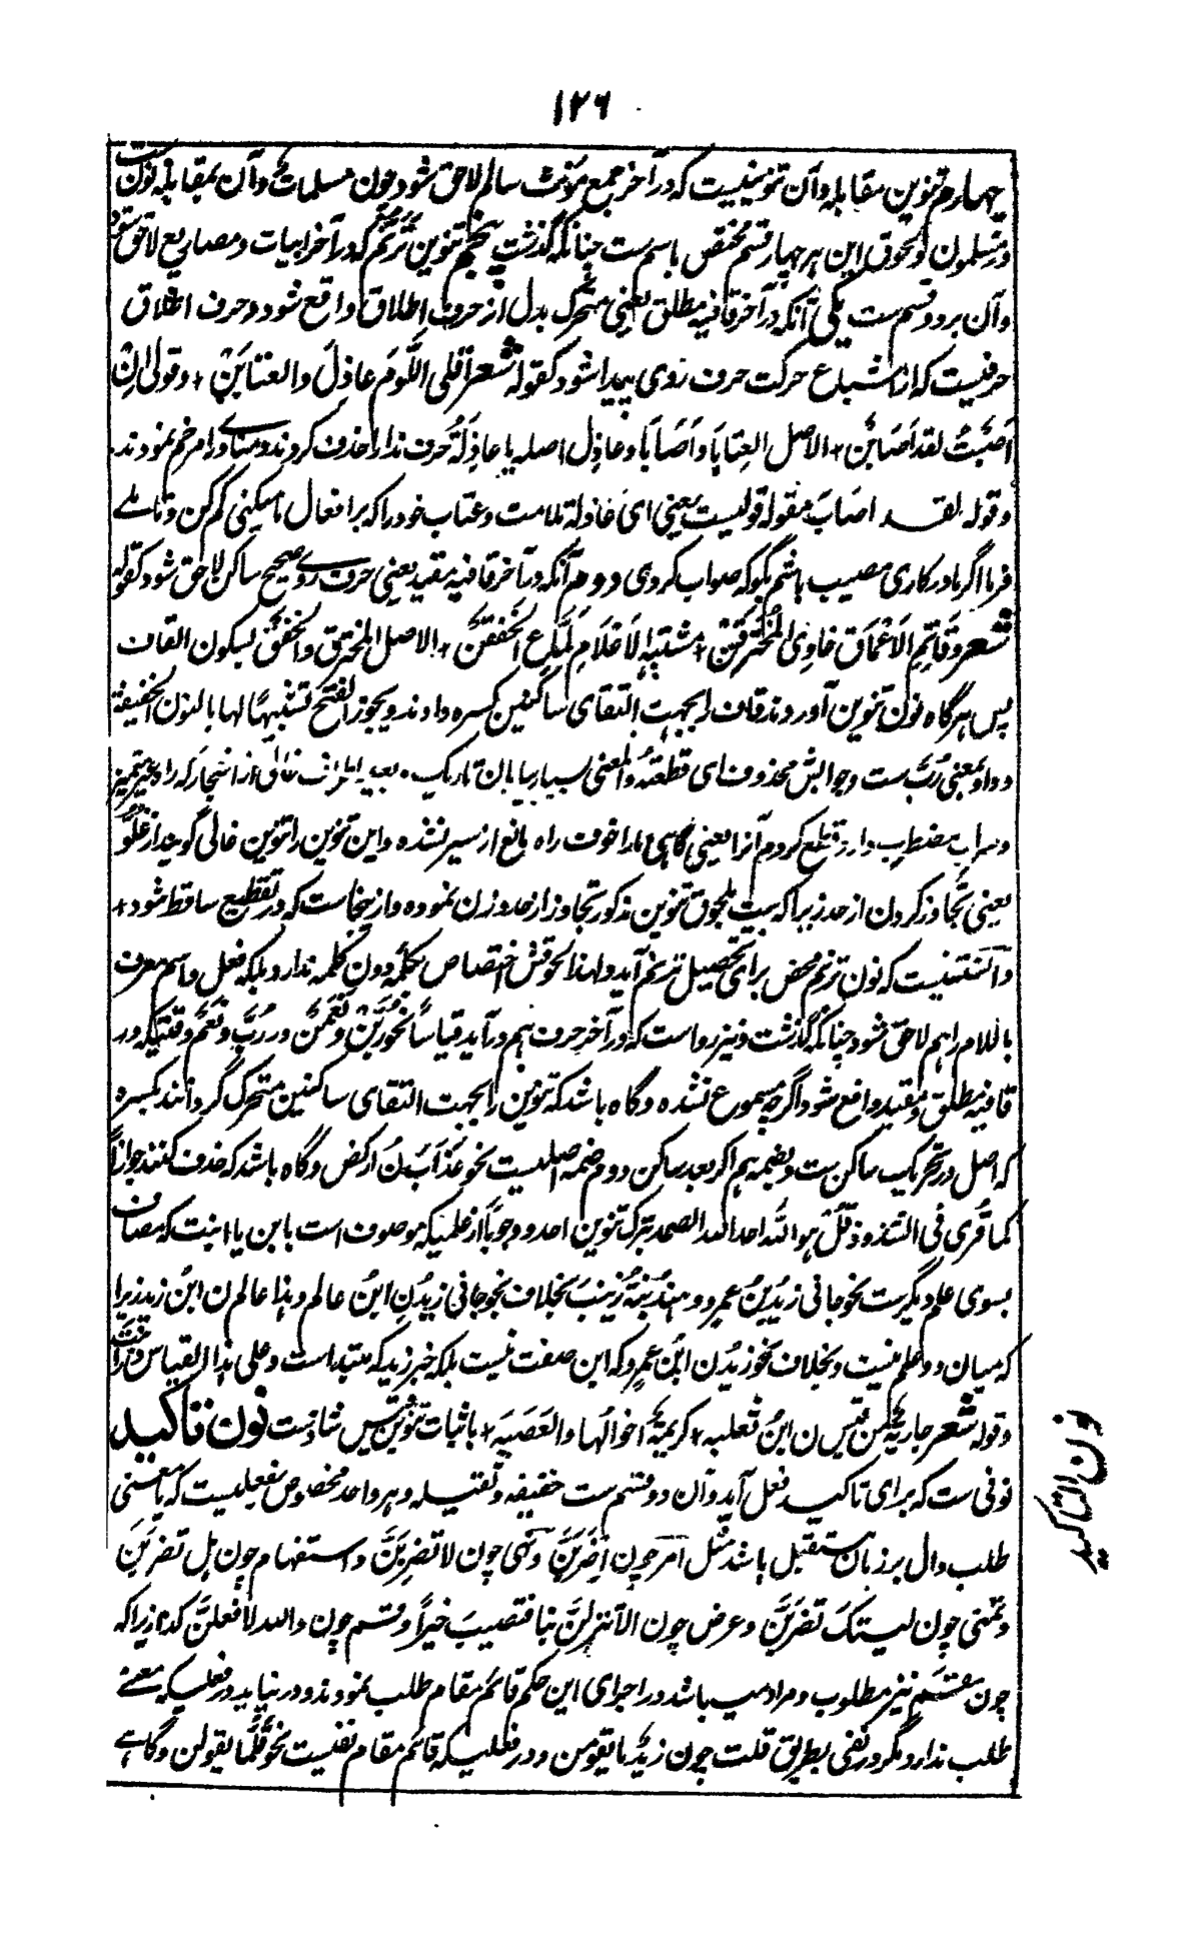 ۱۲۶
چهارم تنوین مقابله وآن تنوینیست که در آخر جمع مؤنث سالم لاحق شود چون مسلمات وآن بمقابله نونست
ومسلمون ولحوق این هر چهار قسم مختص باسم ست چنانکه گذشت پنجم تنوین ترنم که در آخر ابیات ومصاریع لاحق شود
وآن بر دو قسم ست یکی آنکه در آخر قافیه مطلق یعنی متحرک بدل از حرف اطلاق واقع شود وحرف اطلاق
حرفیست که از اشباع حرکت حرف روی پیدا شود کقوله شعر اقلی اللوم عاذل والعتابن * وقولی ان
اصبت لقد اصابن * الاصل العتابا واصابا وعاذل اصله یا عاذلة حرف ندا را حذف کردند ومنادی را مرخم نمودند
وقوله لقد اصاب مقوله قولیست یعنی ای عاذله ملامت وعتاب خود را که بر افعال ما میکنی کم کن وتاملے
فرما اگر ما در کاری مصیب باشم بگو که صواب کردی ودوم آنکه در آخر قافیه مقید یعنی حرف روی صحیح ساکن لاحق شود کقوله
شعر وقاتم الاعماق خاوی المخترقن * مشتبه الاعلام لماع الخفقن * الاصل المخترق والخفق بسکون القاف
پس هر گاه نون تنوین آوردند قاف را بجهت التقای ساکنین کسره دادند ویجوز الفتح تشبیها لها بالنون الخفیفة
وواو بمعنی رب ست وجوابش محذوف ای قطعته والمعنی بسیار بیابان تاریک بعید اطراف خالی از اشجار که راه
وسراب مضطرب دارد قطع کردم آنرا یعنی گاهی مارا خوف راه مانع از سیر نشده واین تنوین را تنوین غالی گویند از غلو
یعنی تجاوز کردن از حد زیرا که بیت بلحوق تنوین مذکور تجاوز از حد وزن نموده وازینجاست که در تقطیع ساقط شود *
ودانستنیست که نون ترنم محض برای تحصیل ترنم آید ولهذا لحوقش اختصاص بکلمه دون کلمه ندارد بلکه فعل واسم معرف
باللام را هم لاحق شود چنانکه گذشت ونیز رواست که در آخر حرف هم در آید قیاسا نحو ربن ونعمن در رب ونعم وقتیکه در
قافیه مطلق ومقید واقع شود اگرچه مسموع نشده وگاه باشد که تنوین را بجهت التقای ساکنین متحرک گردانند بکسره
که اصل در تحریک ساکن ست وبضمه هم اگر بعد ساکن دوم ضمه اصلیست نحو عذابن ارکض وگاه باشد که حذف کنند جوازا
کما قری فی الشذوذ قل هو الله احد الله الصمد بترک تنوین احد ووجوبا از علمیکه موصوف است بابن یا ابنت که مضاف
بسوی علم دیگر ست نحو جانی زید بن عمرو وهند بنة زینب بخلاف نحو جانی زیدن ابن عالم وهذا عالمن ابن زید زیرا
که میان دو علم نیست وبخلاف نحو زیدن ابن عمرو که ابن صفت نیست بلکه خبر زید که مبتداست وعلی هذا القیاس
وقوله شعر جاریة من قیسن ابن ثعلبه * کریمة اخوالها والعصبه * باثبات تنوین قیس شاذ ست نون تاکید
نونی ست که برای تاکید فعل آید وآن دو قسم ست خفیفه وثقیله وهر واحد مخصوص بفعلیست که بمعنی
طلب دال بر زمان مستقبل باشد مثل امر چون اضربن ونهی چون لا تضربن واستفهام چون هل تضربن
وتمنی چون لیتک تضربن وعرض چون الا تنزلن بنا فتصیب خیرا وقسم چون والله لافعلن کذا زیرا که
چون مقسم نیز مطلوب ومراد میباشد در اجرای این حکم قائم مقام طلب نمودند ودر نیاید در فعلیکه معنے
طلب ندارد مگر در نفی بطریق قلت چون زید ما یقومن ودر فعلیکه قائم مقام نفیست نحو قلما یقولن وگاهے
نون التاکید